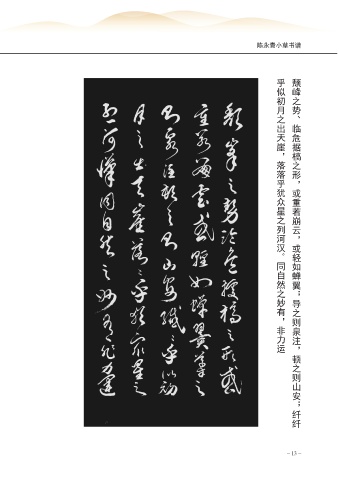 陈永贵小草书谱
颓峰之势、临危据槁之形，或重若崩云，或轻如蝉翼；导之则泉注，顿之则山安；纤纤
乎似初月之出天崖，落落乎犹众星之列河汉。同自然之妙有，非力运
颓峰之势临危据槁之形或
重若崩云或轻如蝉翼导之
则泉注顿之则山安纤纤乎似初
月之出天崖落落乎犹众星之
列河汉同自然之妙有非力运
– 13 –